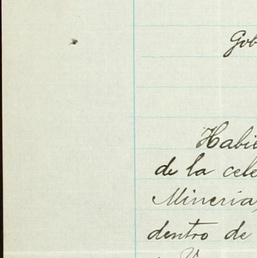 Gob
Habie
de la cele
Minería,
dentro de